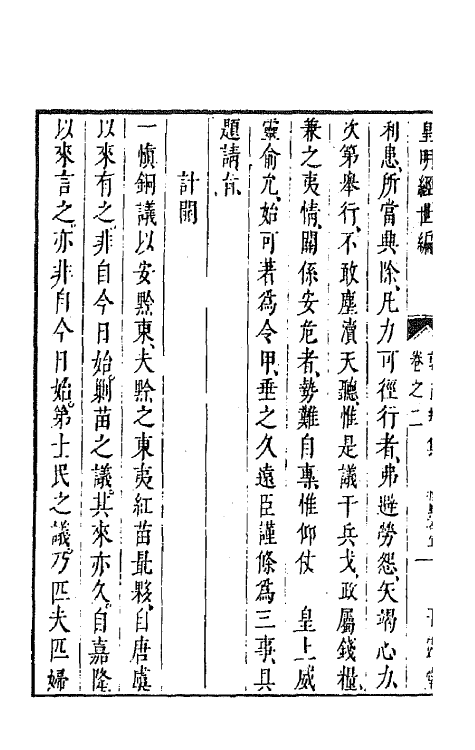 皇明經世編
卷之二
利患、所當興除、凡力可徑行者、弗避勞怨、矢竭心力、
次第舉行、不敢塵瀆天聽、惟是議干兵戈、政屬錢糧、
兼之夷情、關係安危者、勢難自專、惟仰仗 皇上威
靈俞允、始可著爲令甲、垂之久遠、臣謹條爲三事、具
題請旨、
計開
一愼銅議以安黔東、夫黔之東夷紅苗最夥、自唐虞
以來有之、非自今日始、剿苗之議、其來亦久、自嘉隆
以來言之、亦非自今日始、第士民之議、乃匹夫匹婦